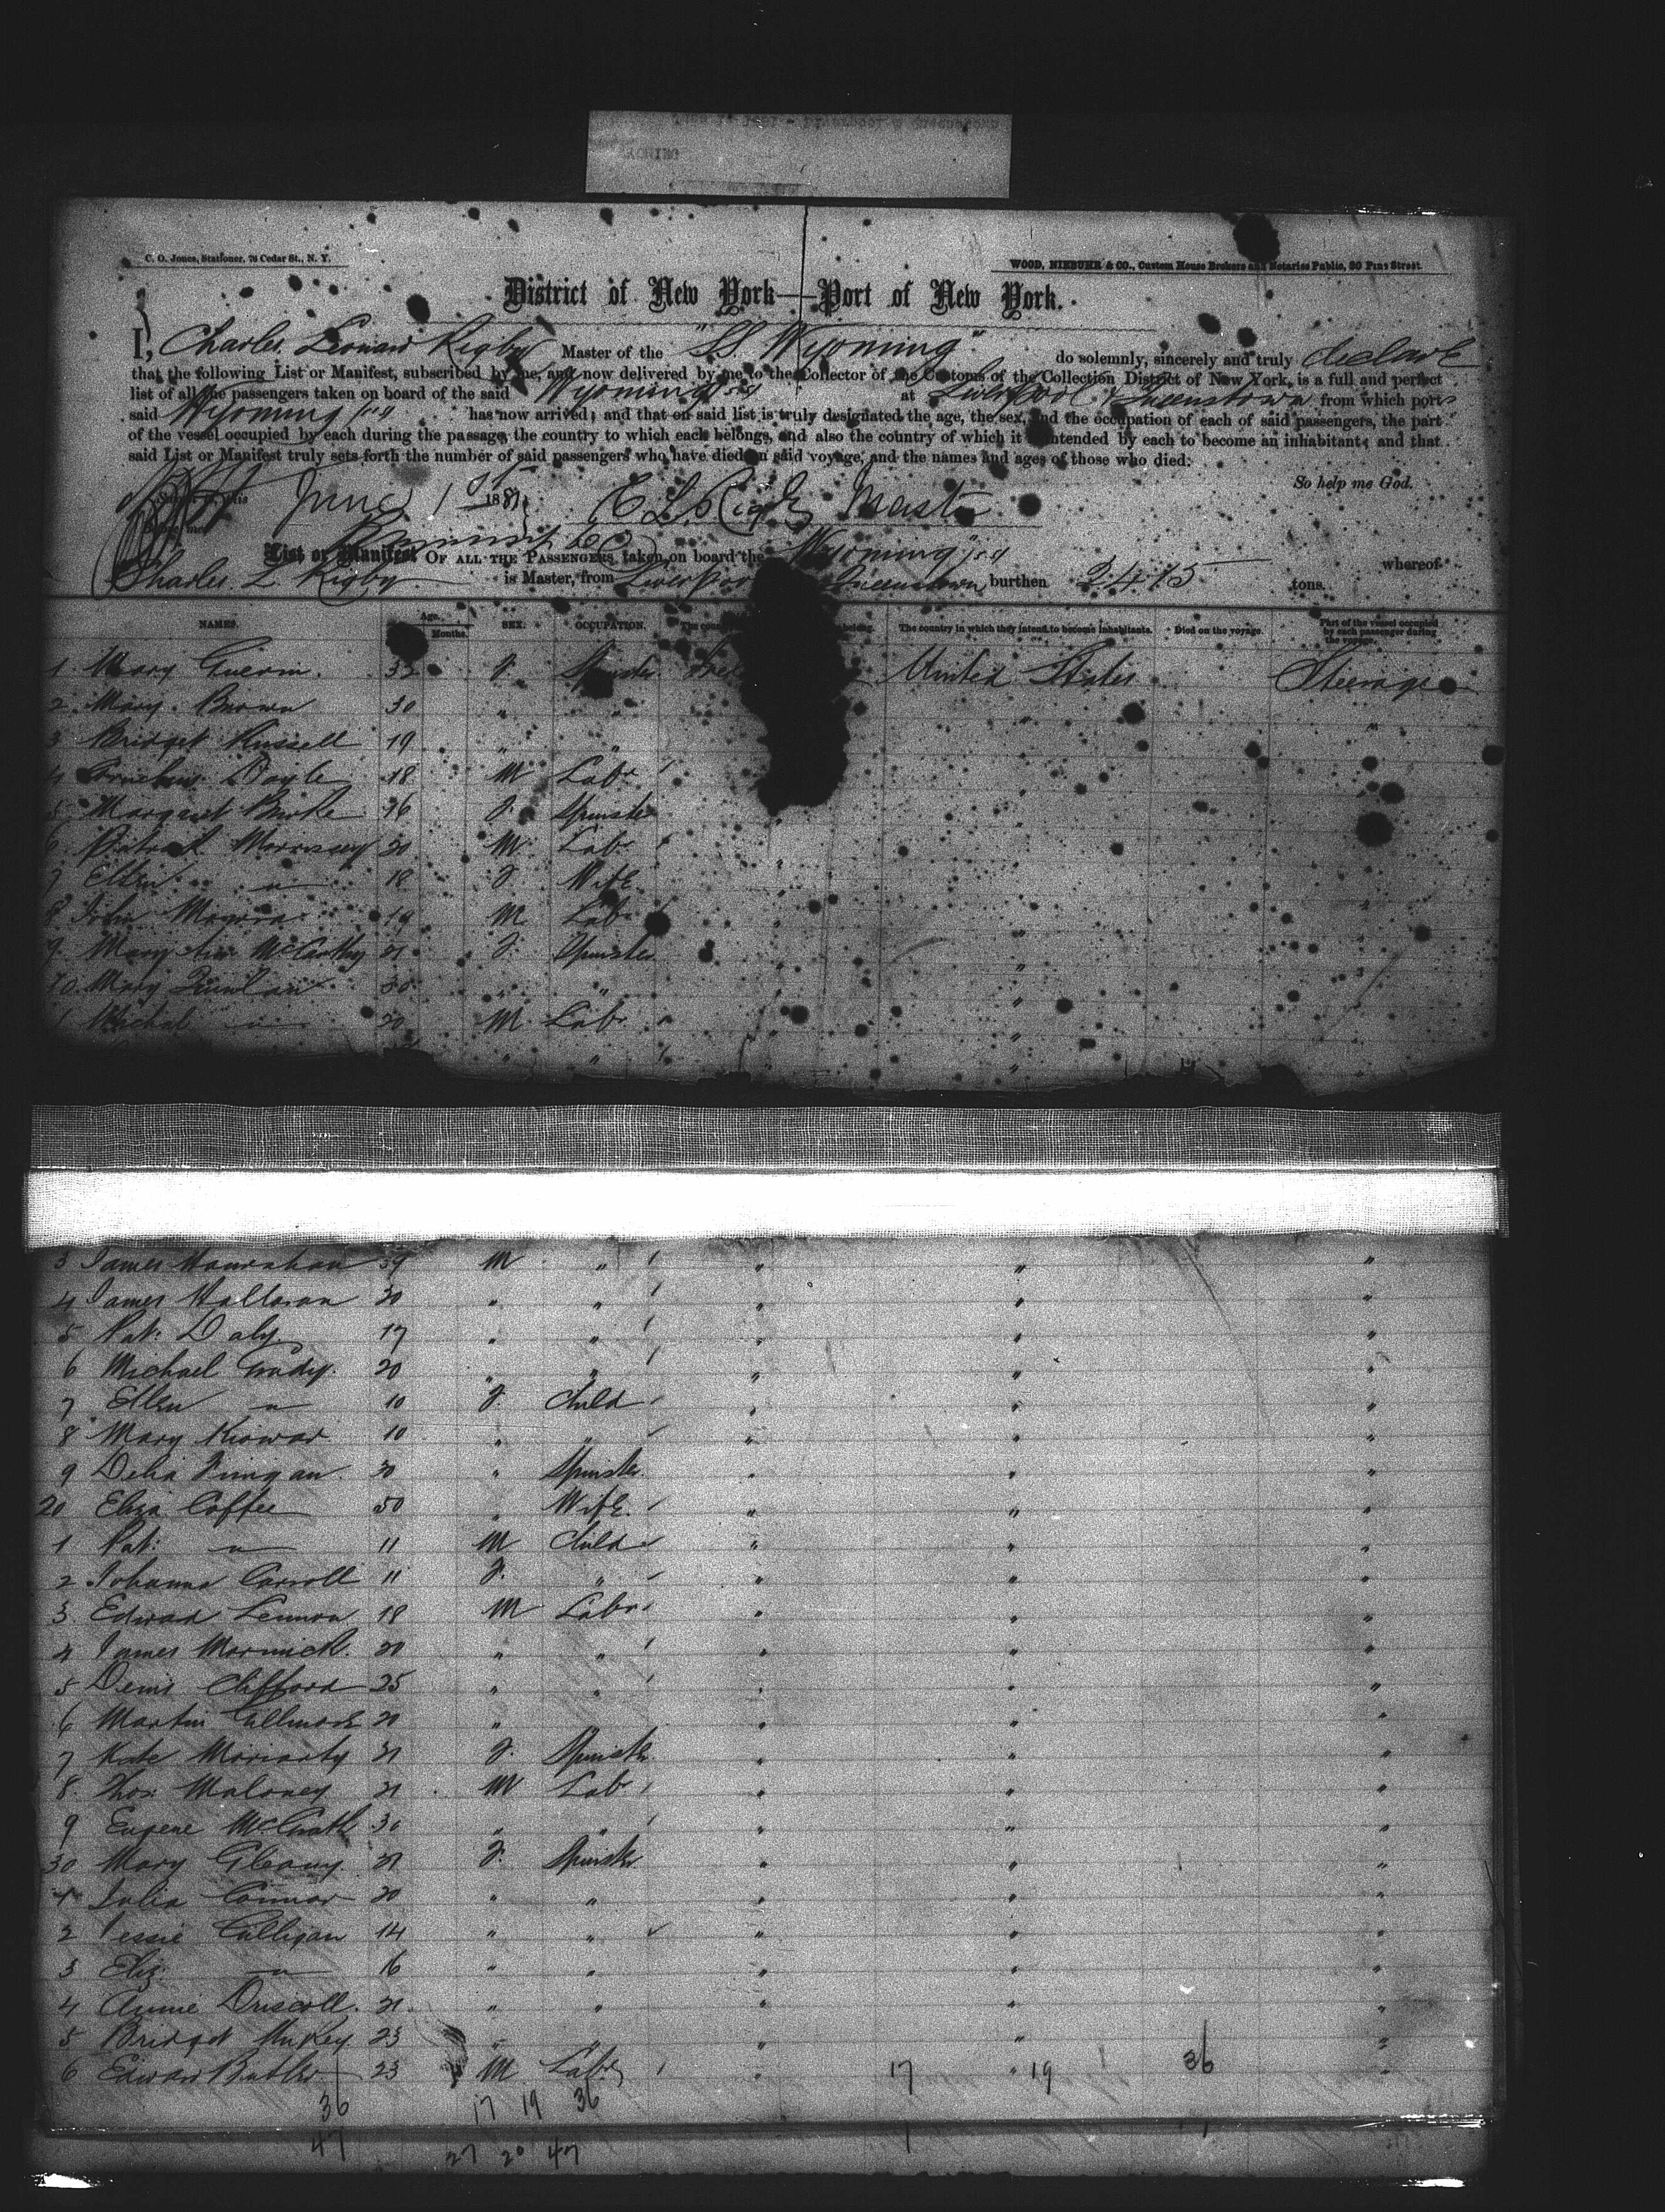 C. O. Jones, Stationer, 76 Cedar St., N. Y.
WOOD, NIEBUHR & CO., Custom House Brokers and Notaries Public, 80 Pine Street.
District of New York—Port of New York.
I, Charles Leonard Rigby Master of the "SS. Wyoming" do solemnly, sincerely and truly declare
that the following List or Manifest, subscribed by me, and now delivered by me to the Collector of the Customs of the Collection District of New York, is a full and perfect
list of all the passengers taken on board of the said Wyoming at Liverpool & Queenstown from which ports
said Wyoming has now arrived; and that on said list is truly designated the age, the sex, and the occupation of each of said passengers, the part
of the vessel occupied by each during the passage, the country to which each belongs, and also the country of which it intended by each to become an inhabitant; and that
said List or Manifest truly sets forth the number of said passengers who have died on said voyage, and the names and ages of those who died.
So help me God.
June 1st 188 C L Rigby Master
List or Manifest OF ALL THE PASSENGERS taken on board the Wyoming whereof
Charles L Rigby is Master, from Liverpool Queenstown burthen 2415 tons.
NAMES. Age. Months. SEX. OCCUPATION. The belong. The country in which they intend to become inhabitants. Died on the voyage. Part of the vessel occupied by each passenger during the voyage.
1 Mary Guerin. 32 F. Spinster United States Steerage
2 Mary Brown 30 " " " "
3 Bridget Russell 19 " "
4 Doyle 18 M Labr
5 Margaret Burke 26 F. Spinster "
6 Patrick Morrissey 20 M Labr "
7 Ellen " 18 F. Wife " "
8 John 19 M Labr " "
9 Mary Ann McCarthy 21 F. Spinster " "
10 Mary Quinlan 30 " " " "
1 Michal " 20 M Labr "
" "
3 James Hanrahan 39 M " " " "
4 James Halloran 30 " " " " "
5 Pat: Daly. 17 " " " " "
6 Michael Grady. 20 " " " " "
7 Ellen " 10 F. Child " " "
8 Mary 10 " " " " "
9 Delia Finigan. 30 " Spinster. " " "
20 Eliza Coffee 50 " Wife. " " "
1 Pat: " 11 M Child " " "
2 Johanna Carroll 11 F. " " " "
3 Edward Lennon 18 M Labr " " "
4 James 20 " " " " "
5 Denis Clifford 25 " " " " "
6 Martin 20 " " " "
7 Kate Moriarty 21 F. Spinster " " "
8 Thos: Maloney 21 M Labr " " "
9 Eugene McGrath 30 " " " " "
30 Mary 21 F. Spinster " " "
1 Julia Connor 20 " " " " "
2 Jessie Culligan 14 " " " " "
3 Eliz: " 16 " " " " "
4 Annie Driscoll. 21 " " " " "
5 Bridget 23 " " " " "
6 Edward Butler 23 M Labr " 17 " 19 36 "
36 17 19 36
47 27 20 47